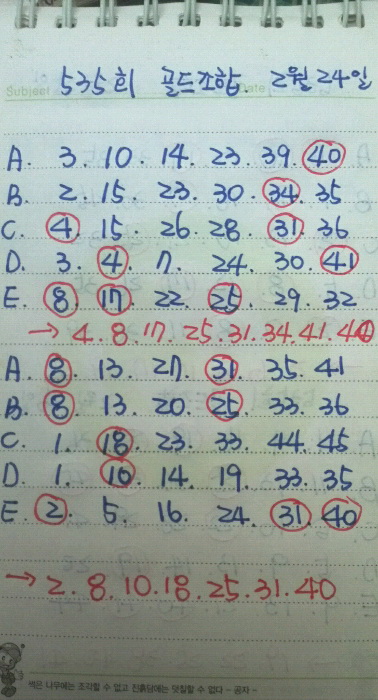 Subject Date
535회 골드조합. 2월 24일
A. 3. 10. 14. 23. 39. 40
B. 2. 15. 23. 30. 34. 35
C. 4. 15. 26. 28. 31. 36
D. 3. 4. 7. 24. 30. 41
E. 8. 17. 22. 25. 29. 32
→ 4. 8. 17. 25. 31. 34. 41. 40
A. 8. 13. 27. 31. 35. 41
B. 8. 13. 20. 25. 33. 36
C. 1. 18. 23. 33. 44. 45
D. 1. 10. 14. 19. 33. 35
E. 2. 5. 16. 24. 31. 40
→ 2. 8. 10. 18. 25. 31. 40
썩은 나무에는 조각할 수 없고 진흙담에는 덧칠할 수 없다 - 공자 -